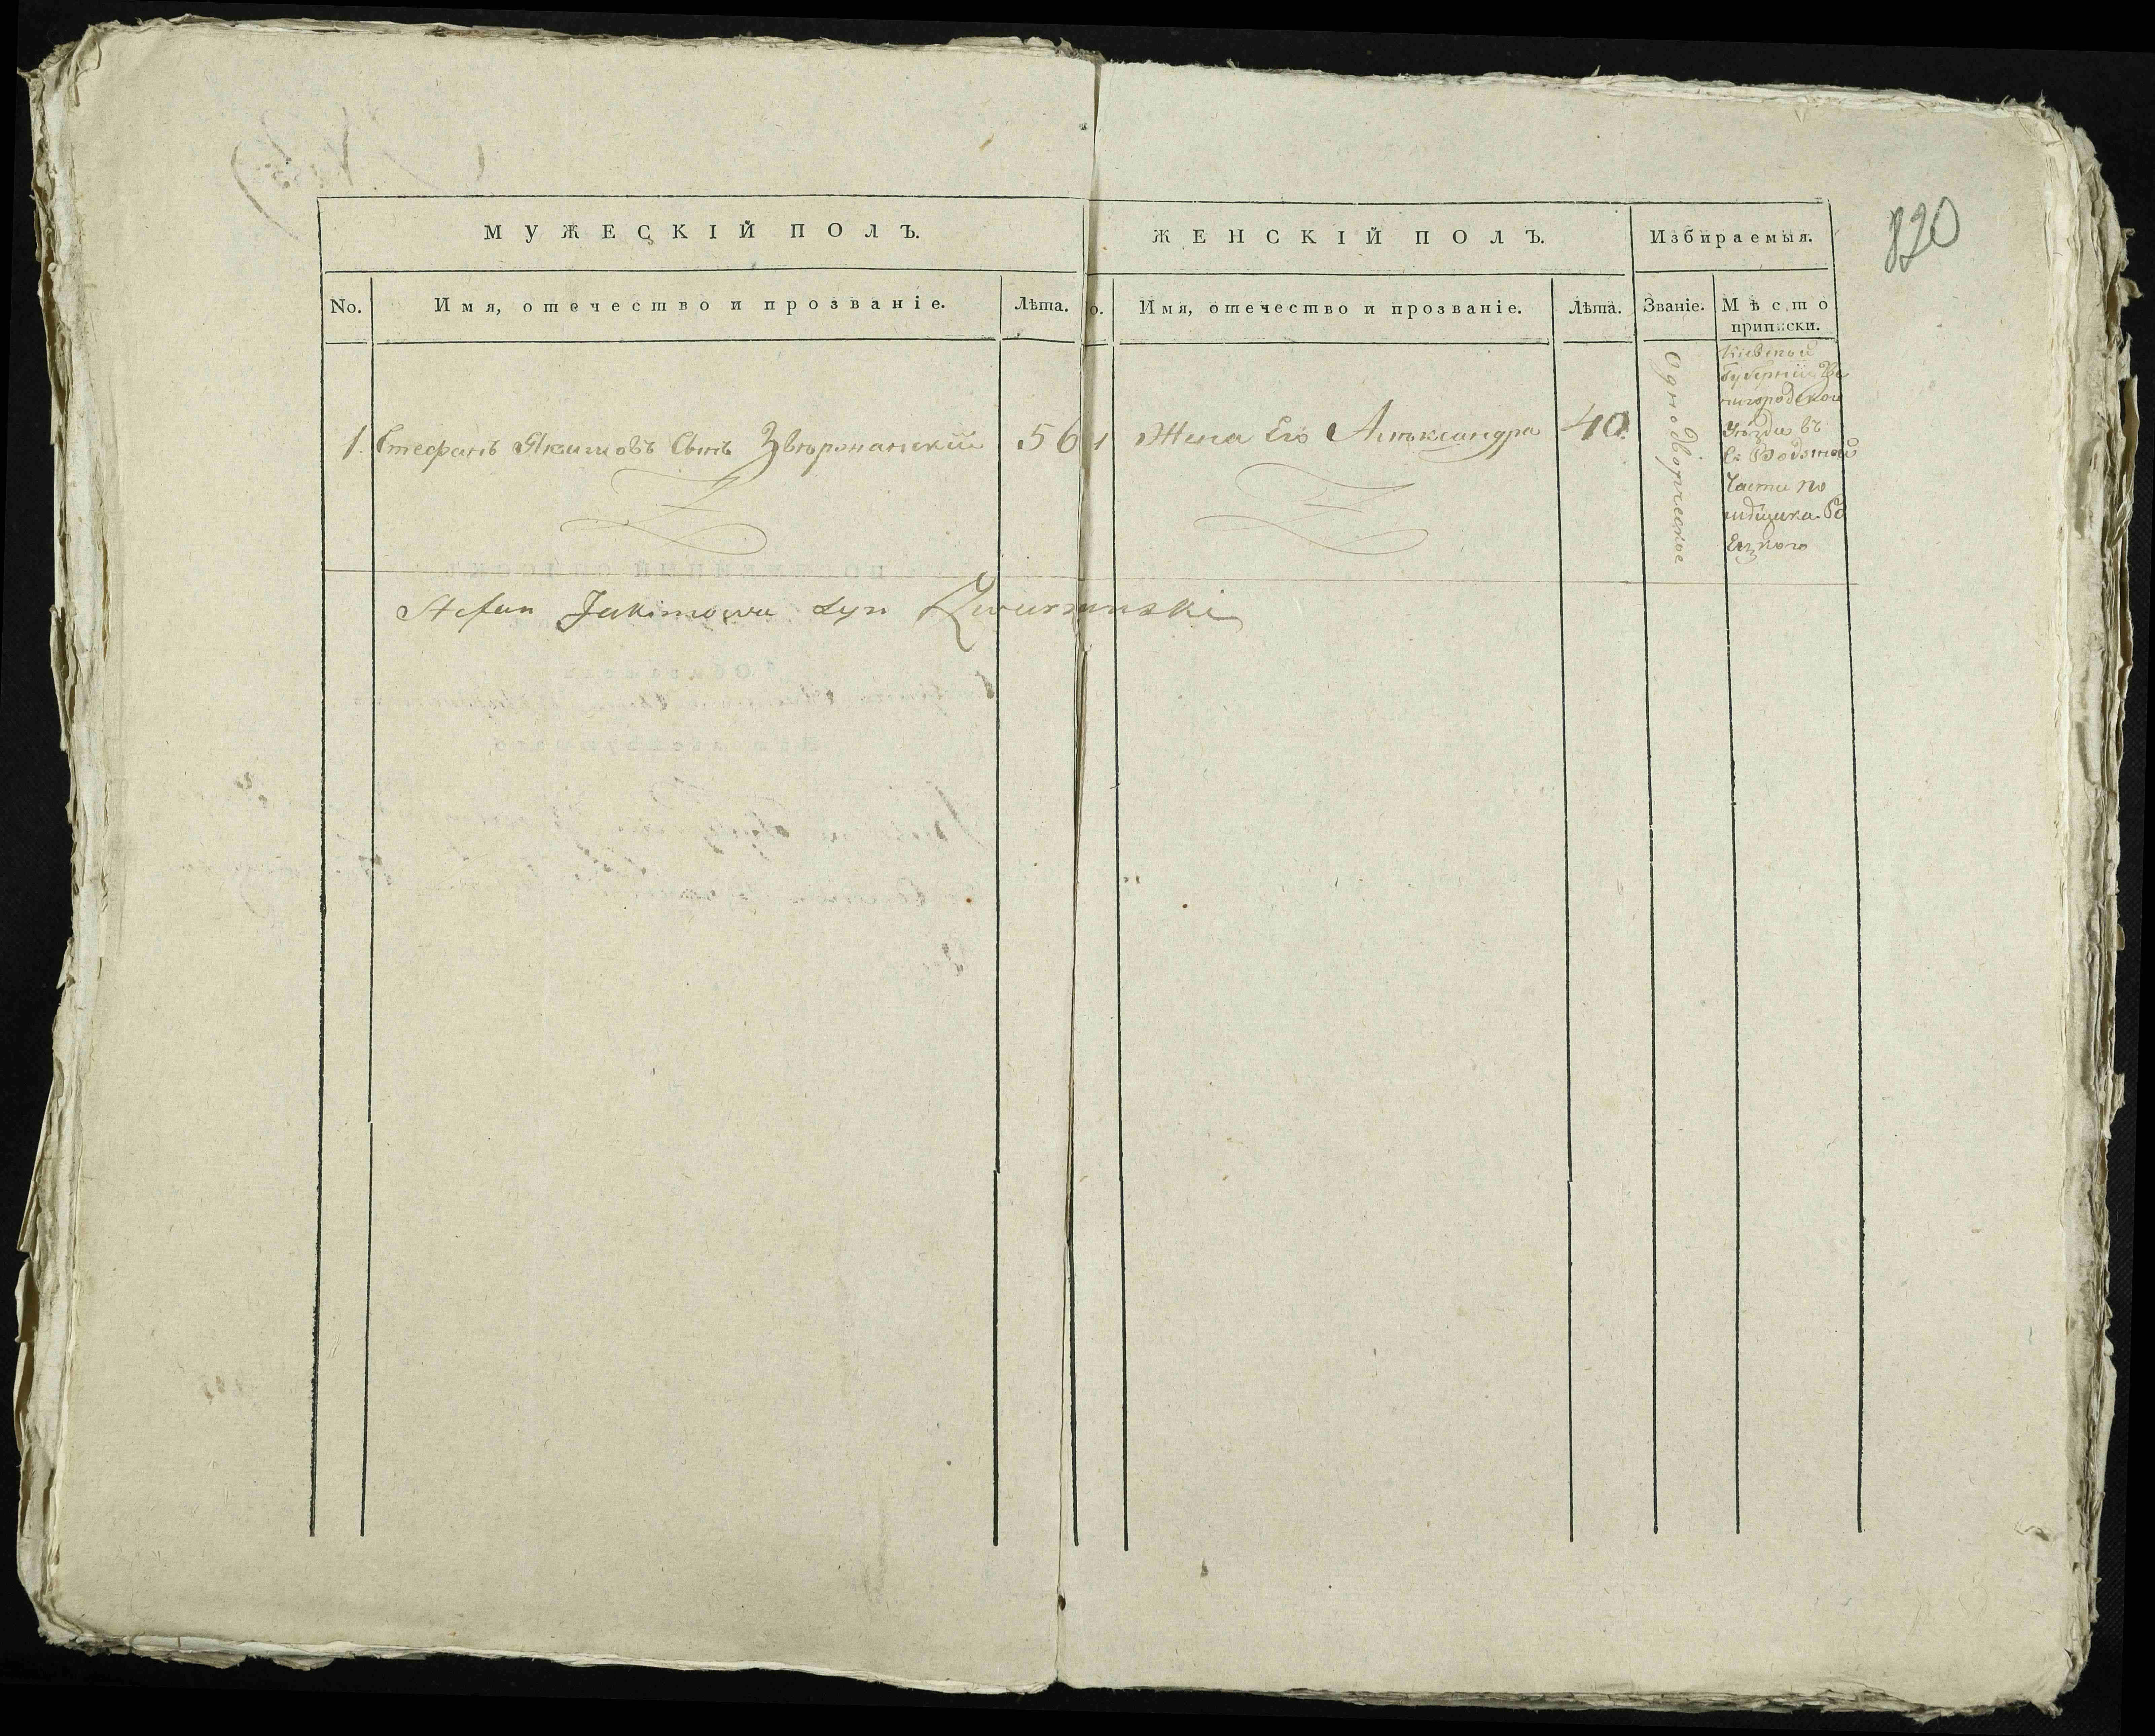 820
МУЖЕСКІЙ ПОЛЪ.
ЖЕНСКІЙ ПОЛЪ.
Избираемыя.
No.
Имя, отечество и прозваніе.
Лѣта.
о.
Имя, отечество и прозваніе.
Лѣта.
Званіе.
Мѣсто
приписки.
1. Стефанъ Якимовъ Сынъ Звѣржанскій
56
1
Жена Его Алѣксандра
40.
Однодворческое
Кіевской
Губерніи Зве
нигородской
Уѣзда въ
С: Водяной
Части по
мѣщика
Stefan Jakimowa syn Zwierzanski